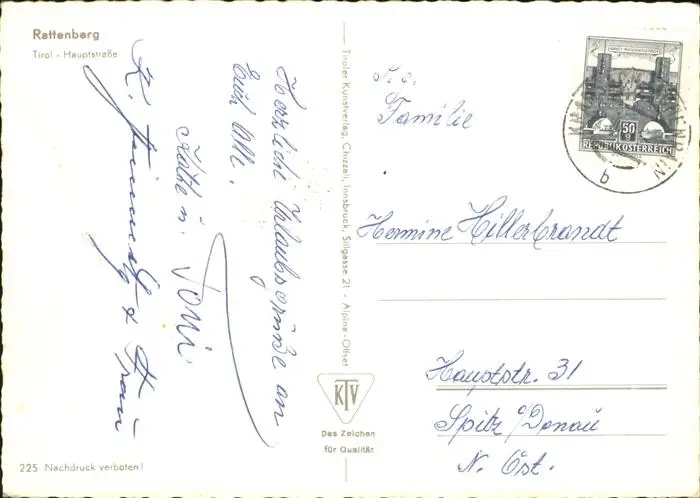 Rattenberg
Tirol - Hauptstraße
Herzliche Urlaubsgrüße an
Euch alle.
Käthe u. Toni
K. & Frau
225 Nachdruck verboten!
Tiroler Kunstverlag, Chizzali, Innsbruck, Sillgasse 21 - Alpine-Offset
KTV
Das Zeichen
für Qualität
50
g
REPUBLIK ÖSTERREICH
b
Familie
Hermine Hillerbrandt
Hauptstr. 31
Spitz a/Donau
N. Öst.